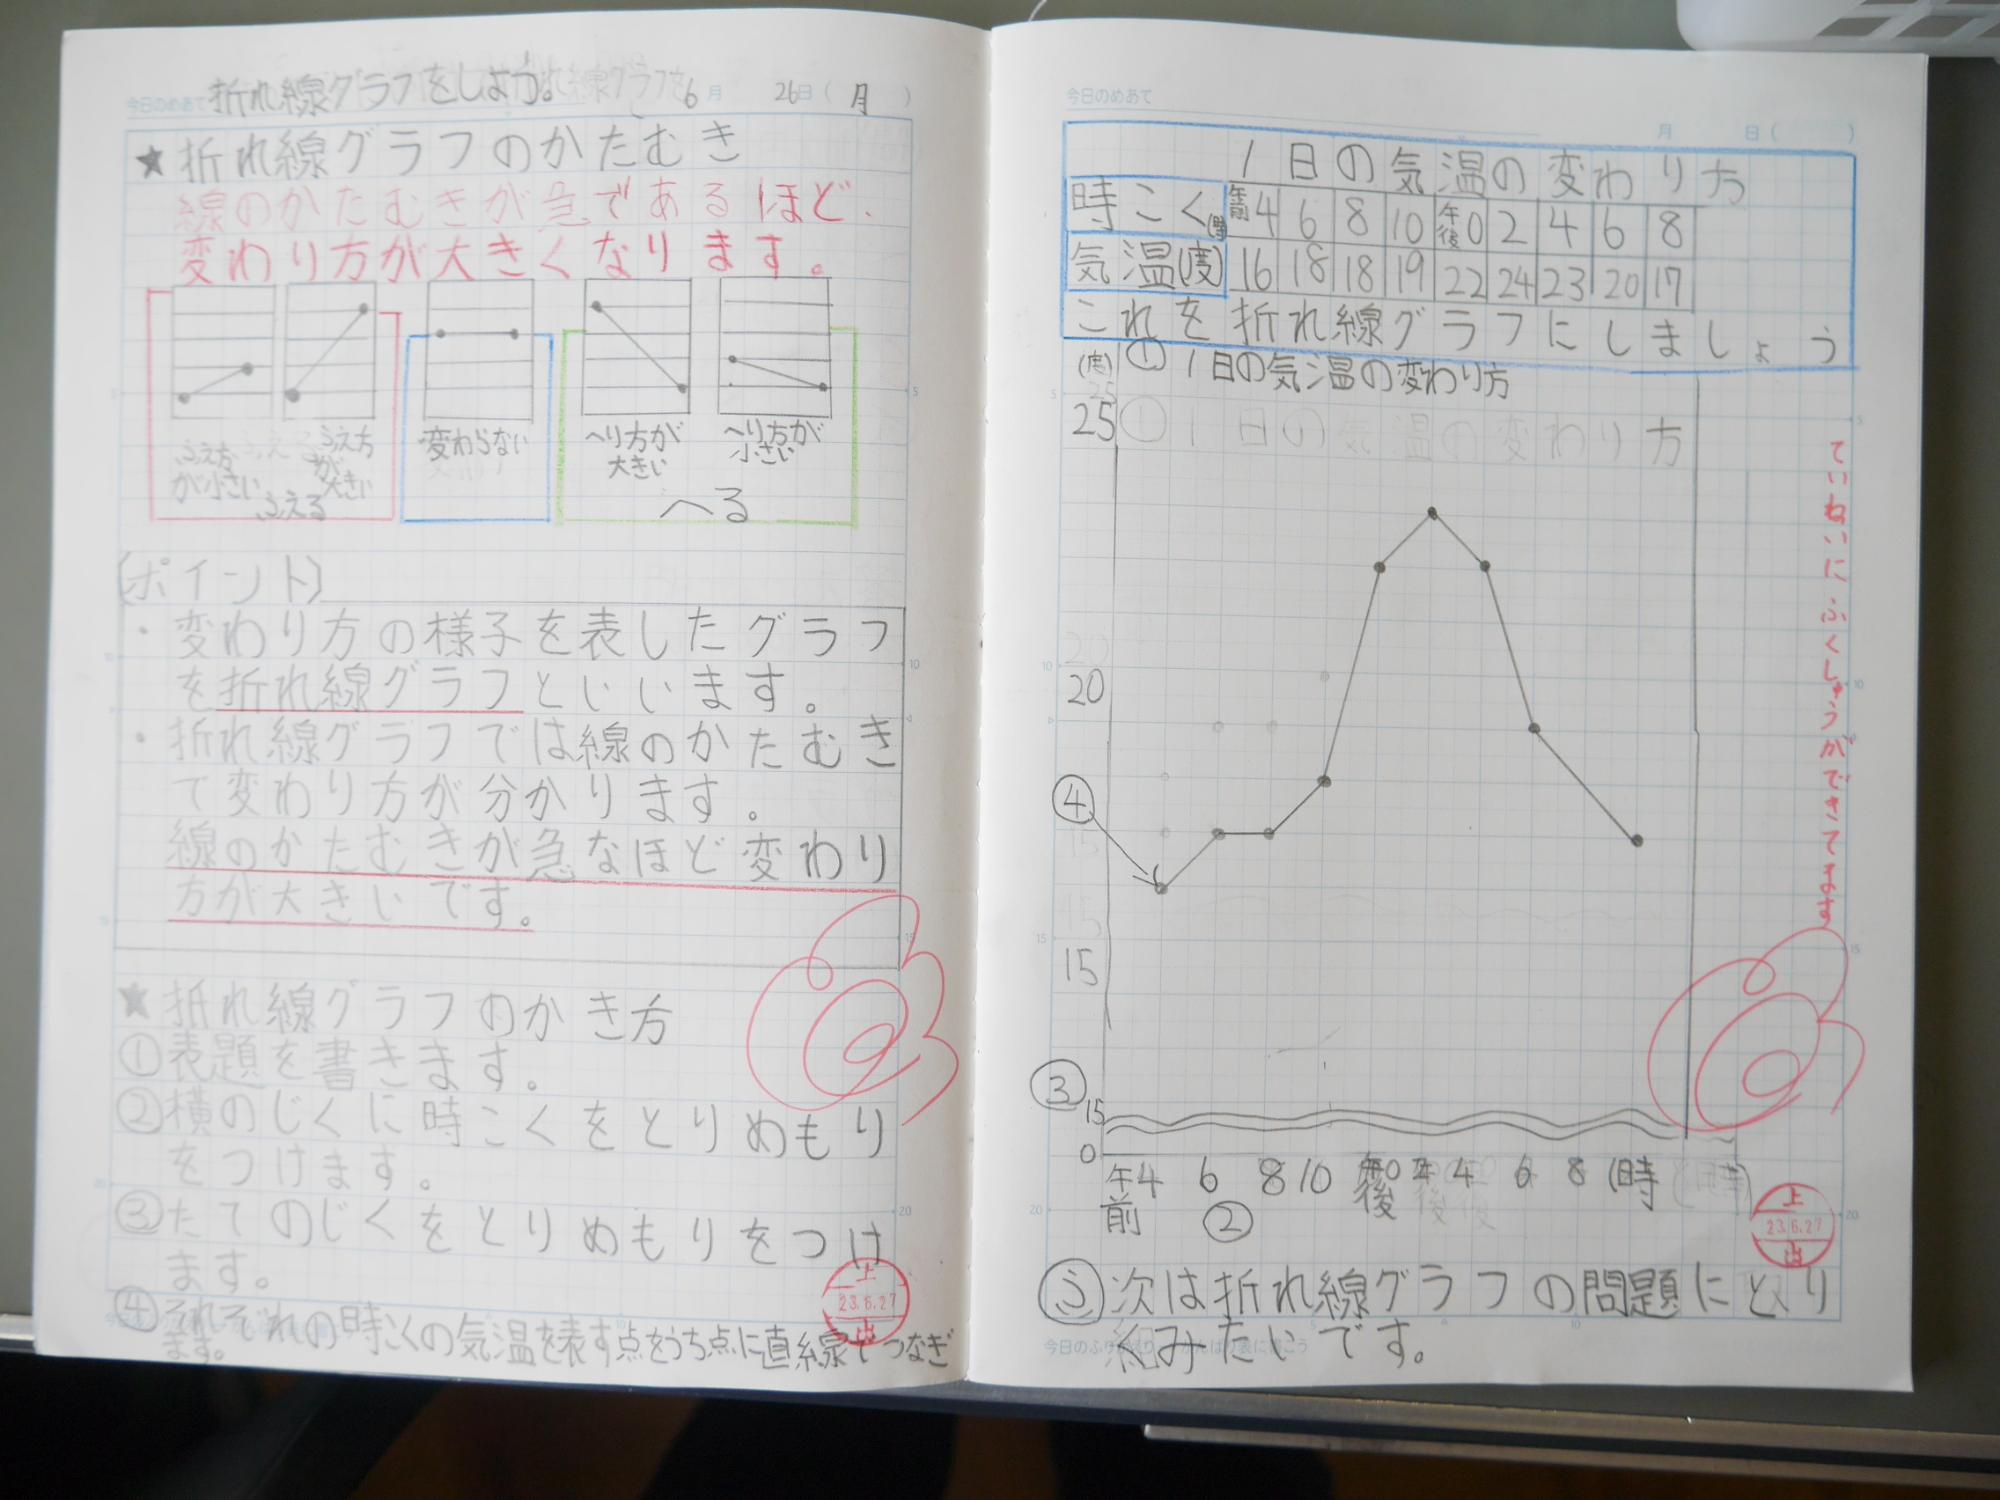 今日のめあて 折れ線グラフをしよう。 6月 26日(月)
★折れ線グラフのかたむき
線のかたむきが急であるほど、
変わり方が大きくなります。
ふえ方が小さい
ふえ方が大きい
ふえる
変わらない
へり方が大きい
へり方が小さい
へる
(ポイント)
・変わり方の様子を表したグラフ
を折れ線グラフといいます。
・折れ線グラフでは線のかたむき
で変わり方が分かります。
線のかたむきが急なほど変わり
方が大きいです。
★折れ線グラフのかき方
①表題を書きます。
②横のじくに時こくをとりめもり
をつけます。
③たてのじくをとりめもりをつけ
ます。
④それぞれの時こくの気温を表す点をうち点に直線でつなぎ
ます。
上
23.6.27
出
今日のめあて 月 日( )
1日の気温の変わり方
時こく(時) 午前4 6 8 10 午後0 2 4 6 8
気温(度) 16 18 18 19 22 24 23 20 17
これを折れ線グラフにしましょう
(度) ① 1日の気温の変わり方
25 ① 1日の気温の変わり方
20
④
15
③
15
0
午前4 6 8 10 午後0 2 4 6 8 (時
②
ていねいにふくしゅうができてます
上
23.6.27
出
ふ 次は折れ線グラフの問題にとり
組みたいです。